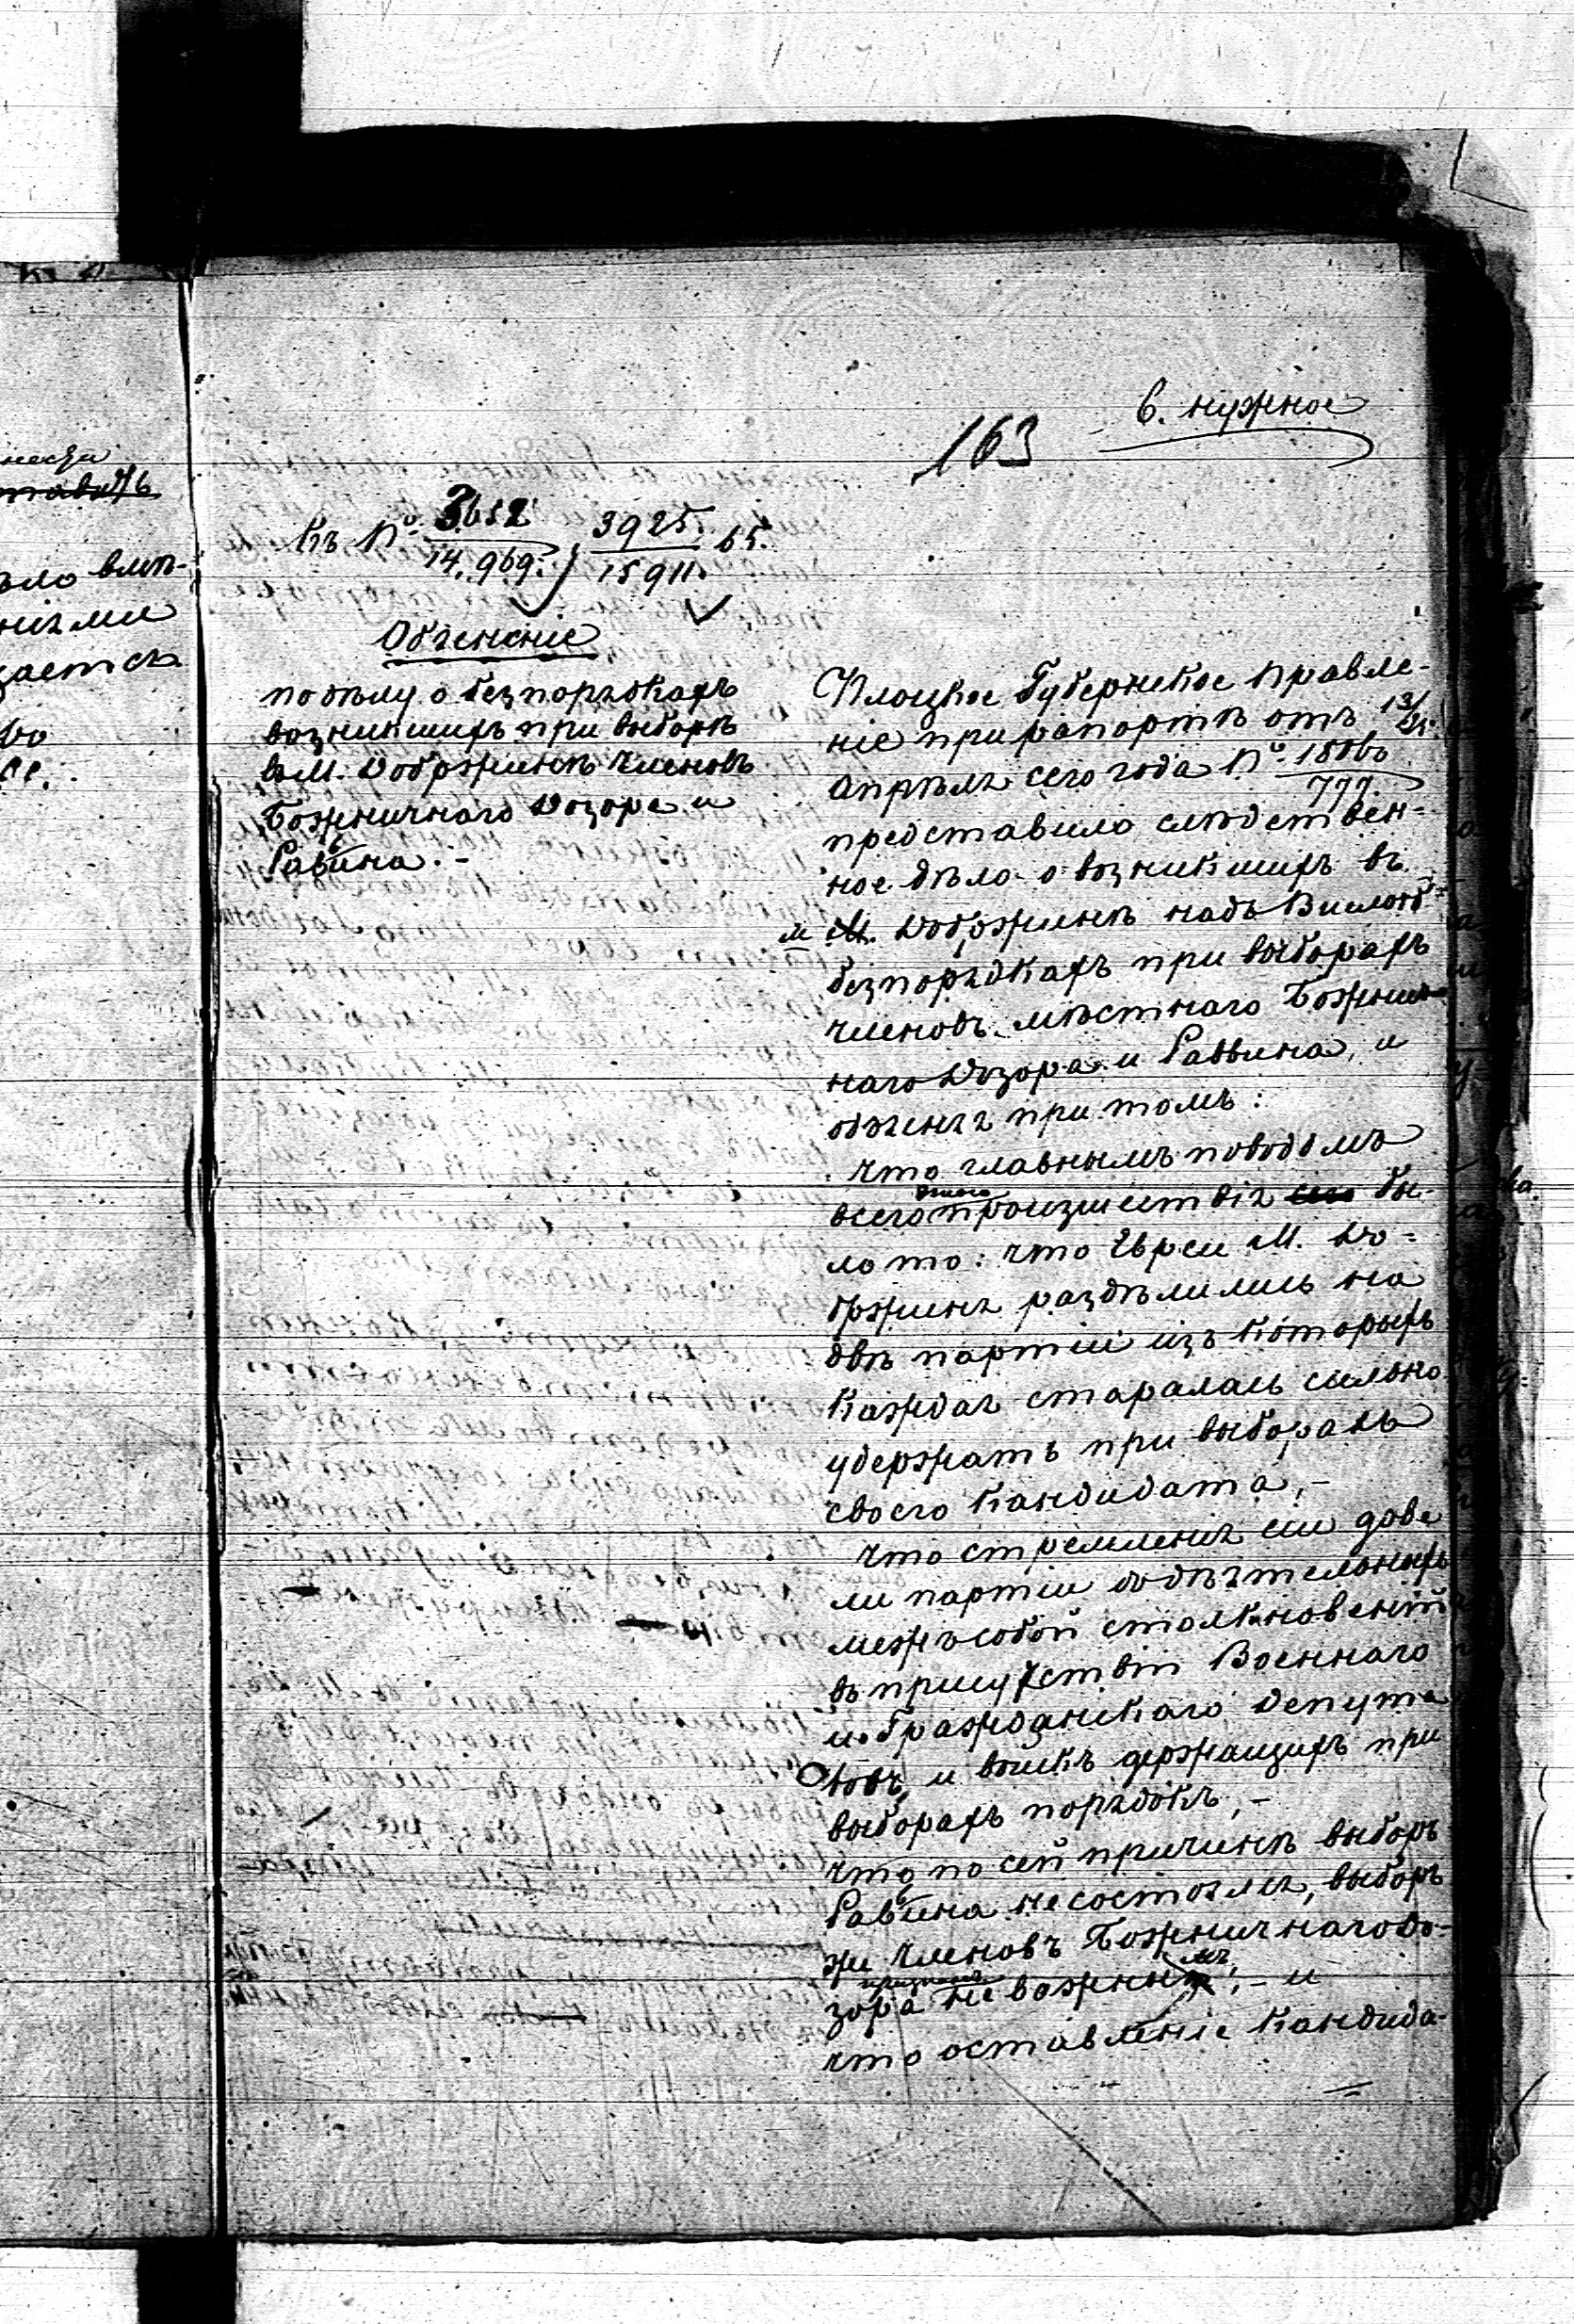 в. нужное
163
Къ № 3652/14.969. 3925./15911. 65.
Объясненіе
по дѣлу о безпорядкахъ
возникшихъ при выборѣ
въ М. Добржинѣ членовъ
Божничнаго Дозора и
Раввина. -
Плоцкое Губернское Правле-
ніе при рапортѣ отъ 13/25.
Апрѣля сего года № 18006/777.
представило слѣдствен-
ное дѣло о возникшихъ въ
м. Добржинѣ надъ Вислою
безпорядкахъ при выборахъ
членовъ мѣстнаго Божнич-
наго Дозора и Раввина, и
объясняя при томъ:
что главнымъ поводомъ
всего этого произшествія бы-
ло то: что Евреи М. До-
бржиня раздѣлились на
двѣ партіи изъ которыхъ
каждая старалась сильно
удержать при выборахъ
своего кандидата, -
что стремленія сіи дове
ли партіи до дѣятельныхъ
межъ собой столкновеній
въ присутствіи Военнаго
и Гражданскаго Депута
товъ, и войскъ держащихъ при
выборахъ порядокъ, -
что по сей причинѣ выборъ
Раввина не состоялся, выборъ
же членовъ Божничнаго До-
зора признанъ не важнымъ, - и
что оставленіе кандида-
несен
ло влѣ-
ніями
гается